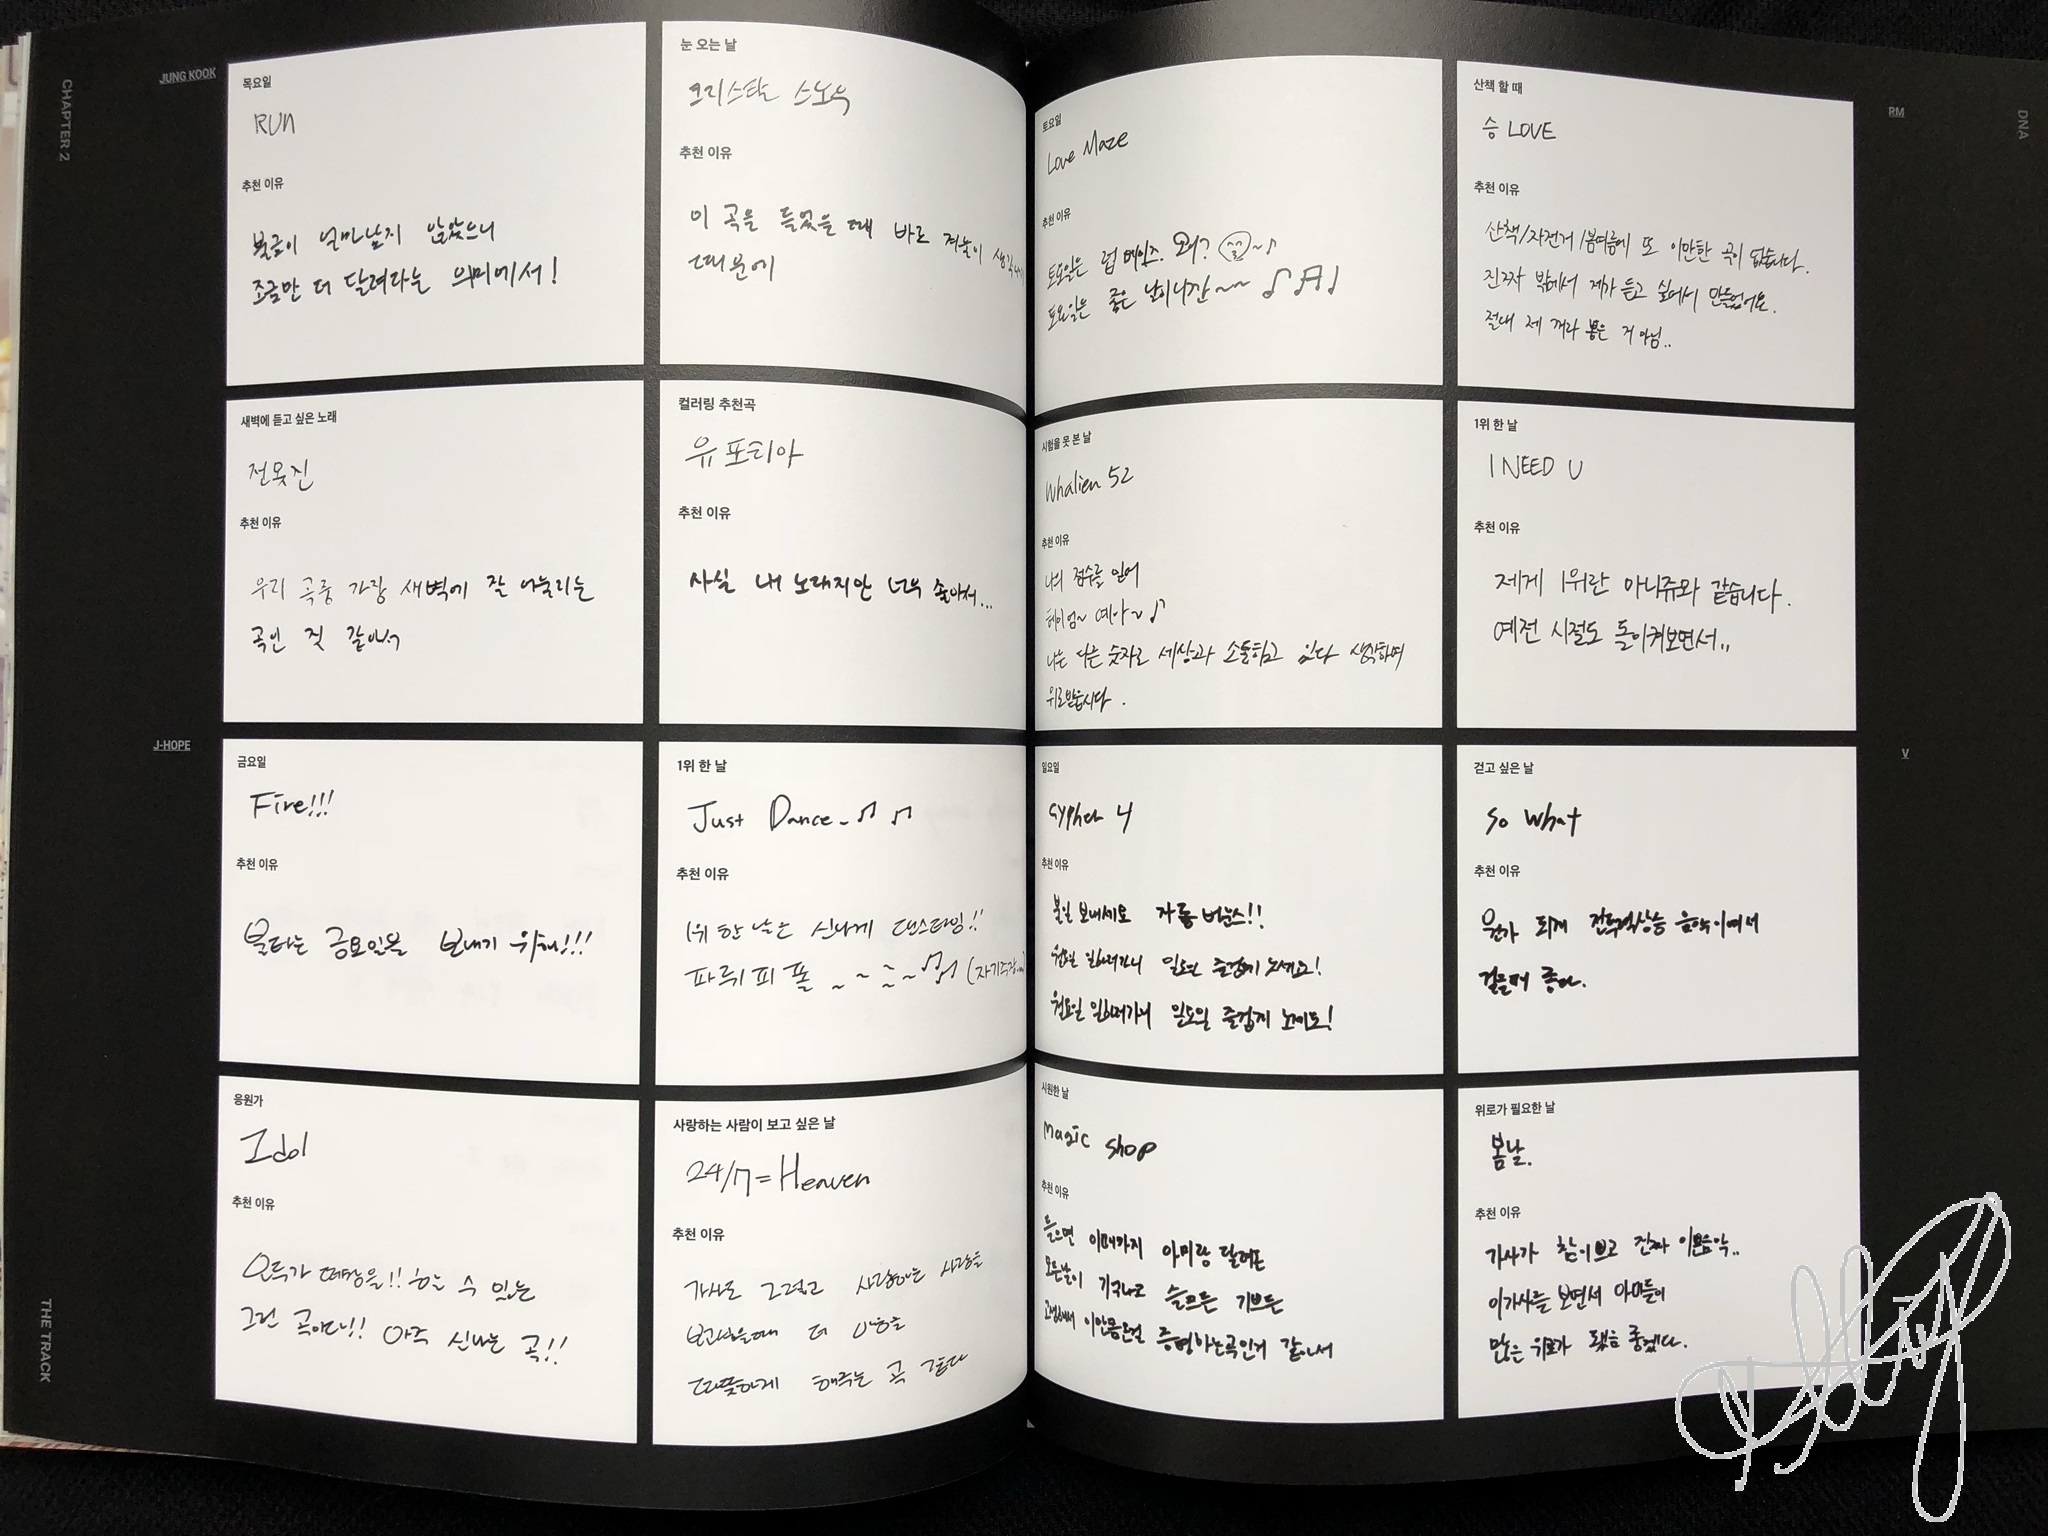 CHAPTER 2
JUNG KOOK
목요일
RUN
추천 이유
불금이 얼마남지 않았으니
조금만 더 달려라는 의미에서!
눈 오는 날
크리스탈 스노우
추천 이유
이 곡을 들었을 때 바로 겨울이 생각나기
때문에
새벽에 듣고 싶은 노래
전옺진
추천 이유
우리 곡중 가장 새벽에 잘 어울리는
곡인 것 같아서
컬러링 추천곡
유포리아
추천 이유
사실 내 노래지만 너무 좋아서...
J-HOPE
금요일
Fire!!!
추천 이유
불타는 금요일을 보내기 위해!!!
1위 한 날
Just Dance
추천 이유
1위 한 날은 신나게 댄스타임!!
파뤼피폴 ~~~~
응원가
Idol
추천 이유
모두가 떼창을!! 하는 수 있는
그런 곡이다!! 아주 신나는 곡!!
사랑하는 사람이 보고 싶은 날
24/7=Heaven
추천 이유
가사도 그렇고 사랑하는 사람을
보고싶을때 더 마음을
따뜻하게 해주는 곡 같다
THE TRACK
RM
DNA
토요일
Love Maze
추천 이유
토요일은 럽 메이즈. 왜? ~♪
토요일은 좋은 날이니깐~~ ♪♬♩
산책 할 때
승 LOVE
추천 이유
산책/자전거/봄여름에 또 이만한 곡이 없습니다.
진짜 밖에서 제가 듣고 싶어서 만들었어요.
절대 제 꺼라 뽑은 거 아님..
시험을 못 본 날
Whalien 52
추천 이유
나의 점수를 믿어
헤이엄~ 예아~♪
나는 다른 숫자로 세상과 소통하고 있다 생각하며
위로받읍시다.
1위 한 날
I NEED U
추천 이유
제게 1위란 아니쥬와 같습니다.
예전 시절도 돌이켜보면서..
V
일요일
cypher 4
추천 이유
붙일 보내세요 자동 바운스!!
월요일 일하러가니 일요일 즐겁게 노세요!
월요일 일하러가니 일요일 즐겁게 노세요!
걷고 싶은 날
So What
추천 이유
뭔가 되게 음악이여서
걸을때 좋다.
시원한 날
magic shop
추천 이유
들으면 이때까지 아미랑 달려온
모든날이 기억나고 슬프든 기쁘든
고생해서 이만큼온걸 증명하는곡인거 같아서
위로가 필요한 날
봄날.
추천 이유
가사가 참이쁘고 진짜 이쁜음악..
이가사를 보면서 아미들이
많은 위로가 됐음 좋겠다.